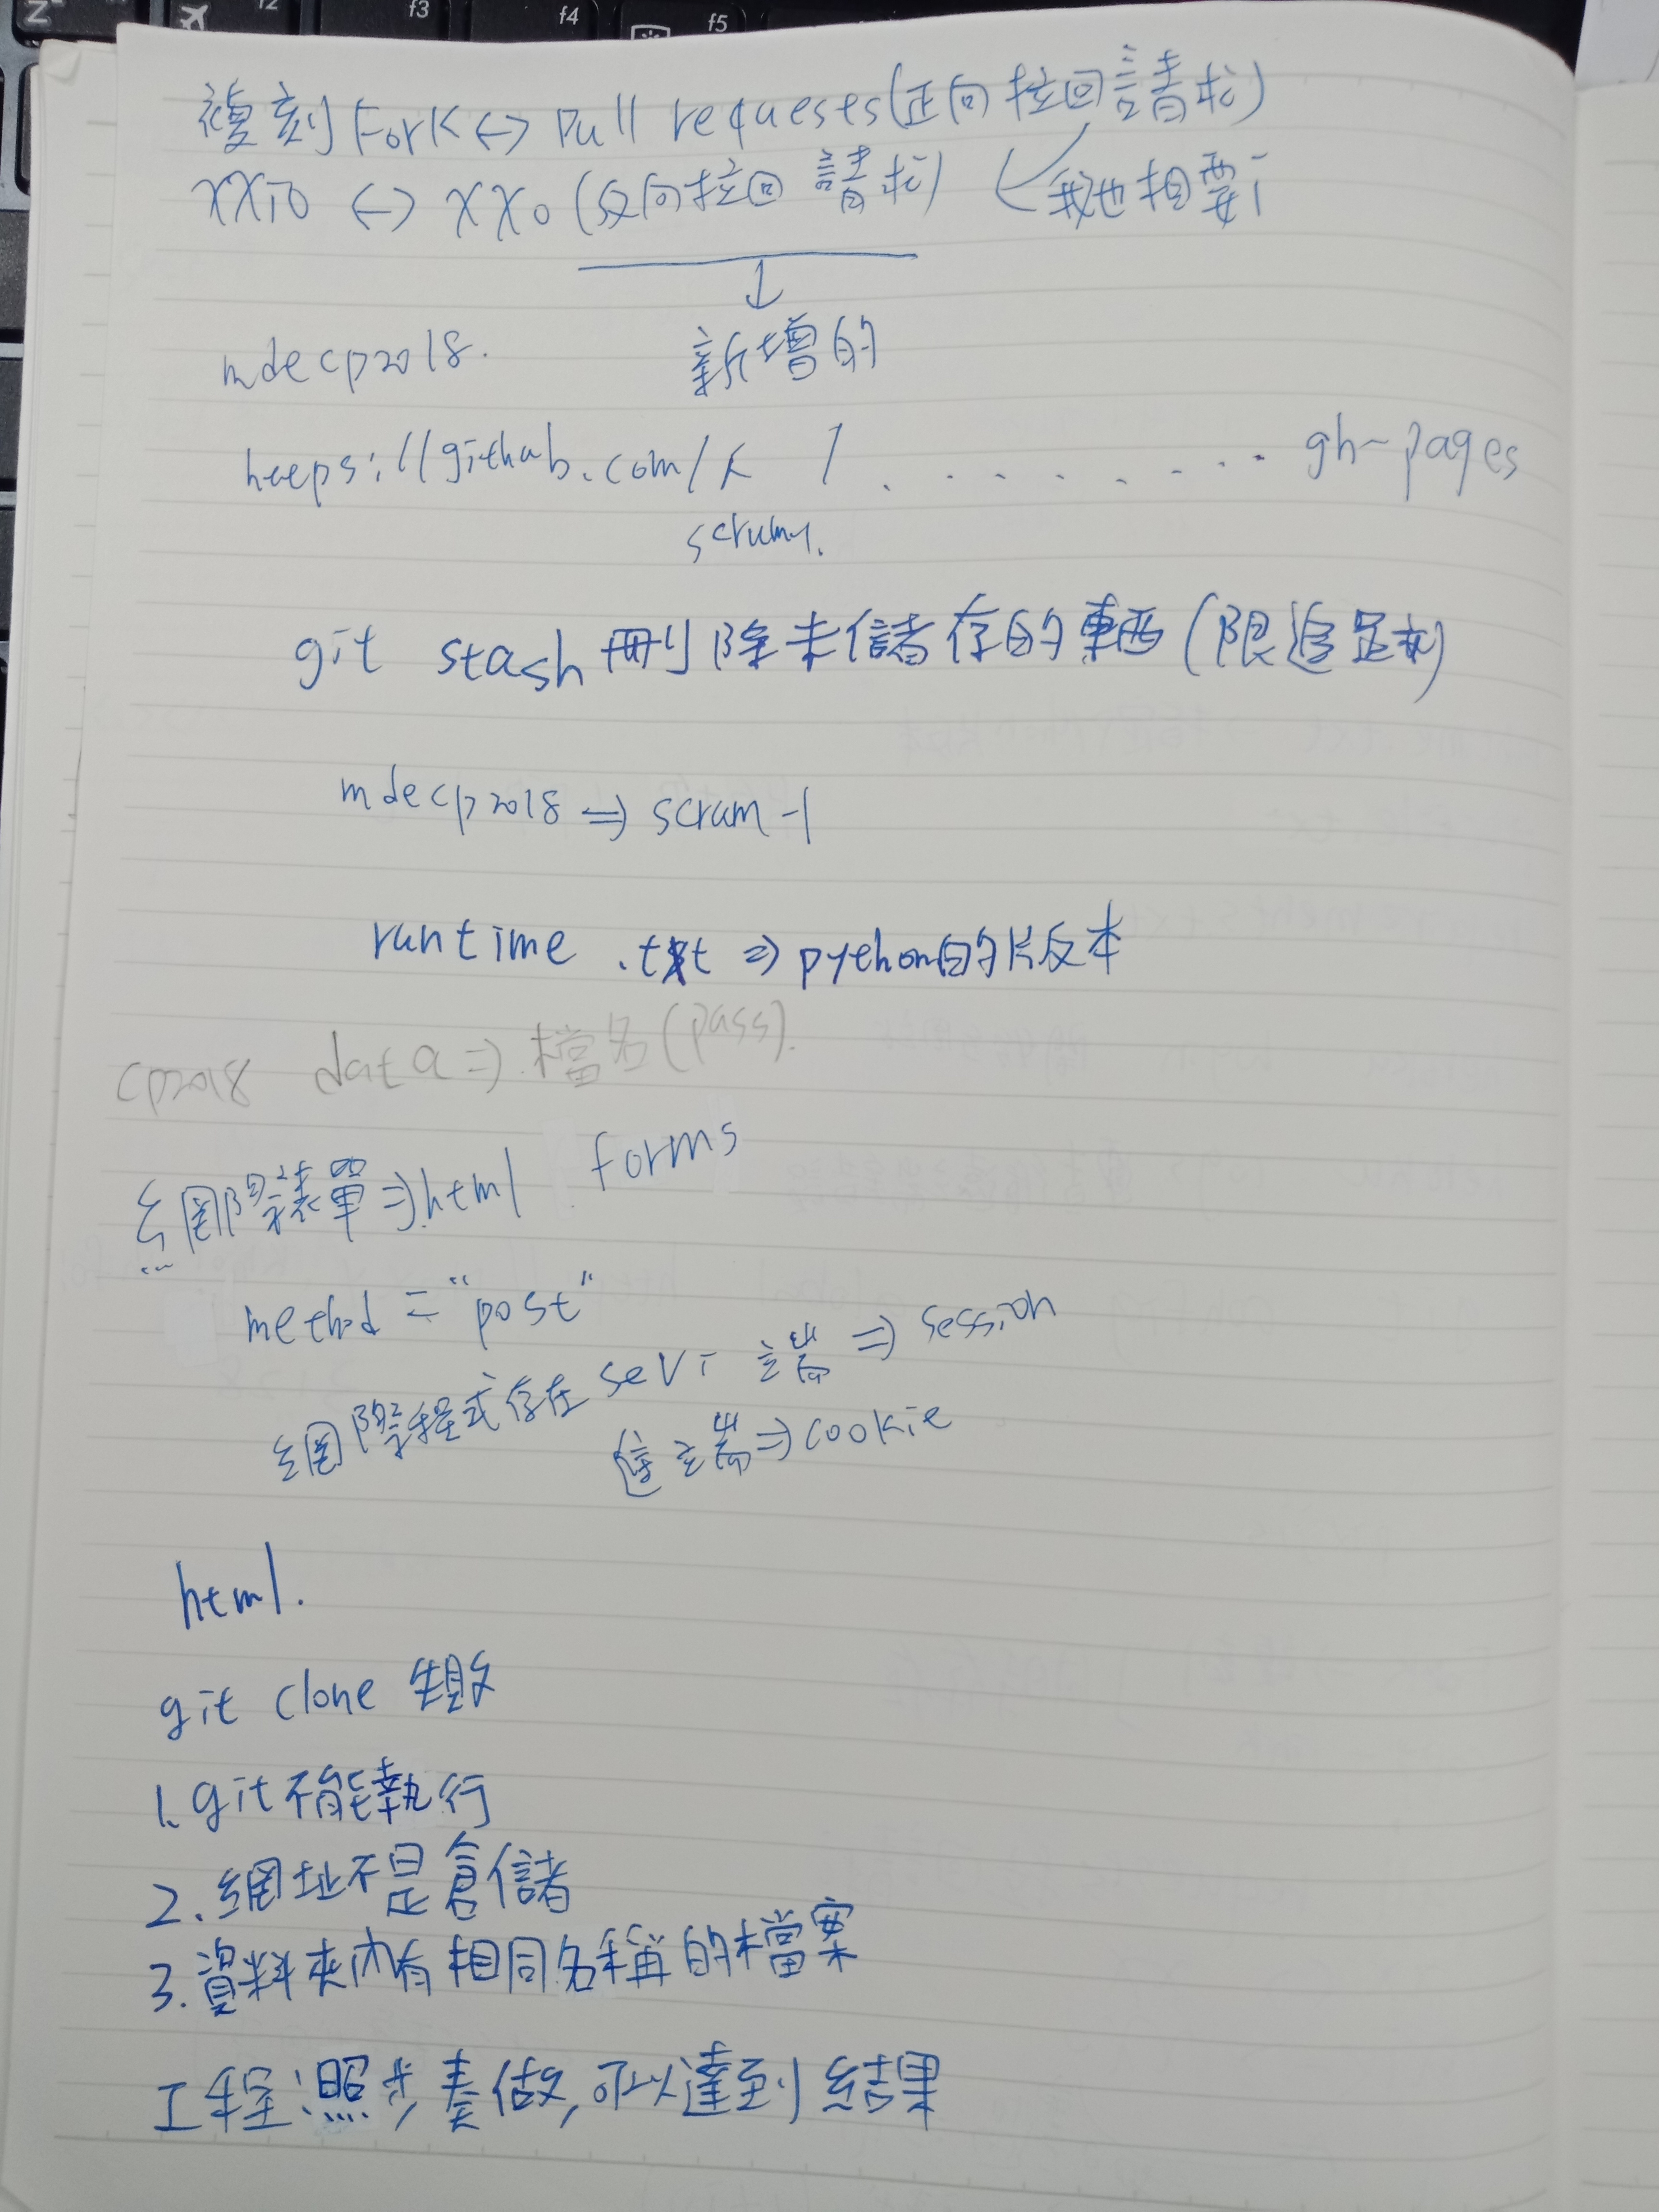 複刻Fork<-> Pull requests(正向拉回請求)
<-> (反向拉回請求) 我也想要
↓
新增的
mdecp2018.
https://github.com/ / . . . . . . . . gh-pages
scrum-1.
git stash 刪除未儲存的東西(限追蹤)
mdecp2018 => scrum-1
runtime .txt => python的版本
cp2018 data => 檔名(pass).
網際表單 => html forms
method = "post"
網際程式存在 端 => session
端 => cookie
html.
git clone 失敗
1. git不能執行
2. 網址不是倉儲
3. 資料夾內有相同名稱的檔案
工程:照步奏做, 可以達到結果